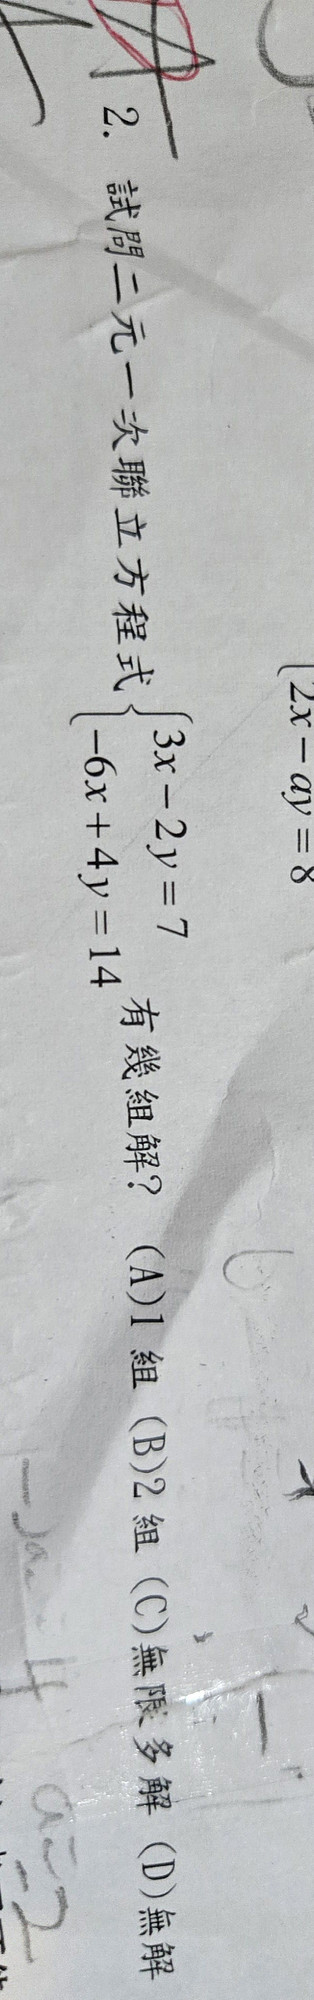 2x-ay=8
2. 試問二元一次聯立方程式{3x-2y=7
-6x+4y=14 有幾組解? (A)1組 (B)2組 (C)無限多解 (D)無解
a=2